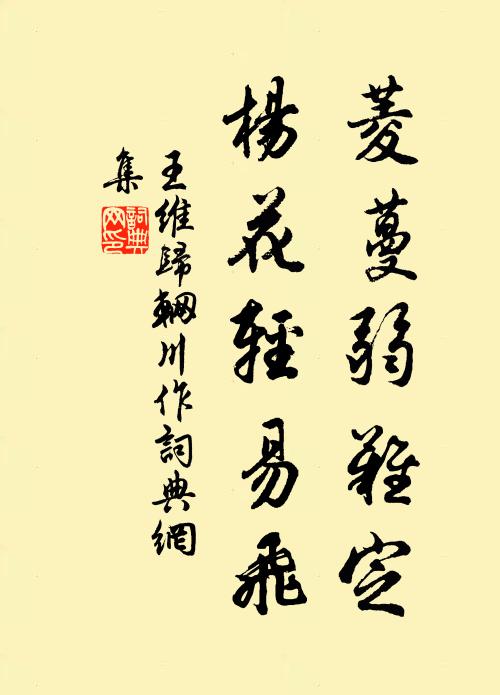 菱蔓弱難定
楊花輕易飛
王維歸輞川作詞典網
集
詞典
网印